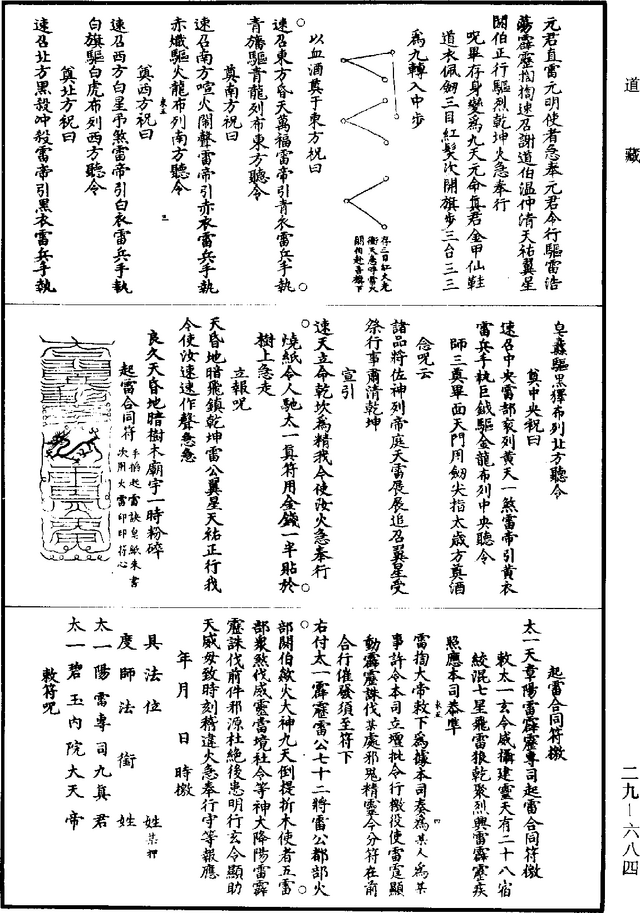 道藏
元君直雷元明使者急奉元君令行驅雷浩
蕩霹靂掏掏速召謝道伯溫仲清天祐翼星
閼伯正行驅烈乾坤火急奉行
呪畢存身變為九天元命真君金甲仙鞋
道衣佩劒三目紅髮次開旗步三台三三
為九轉入中步
存三目紅大光
衝天急呼雷火
閼伯赴吾旗下
以血酒奠于東方祝曰
速召東方昏天萬福雷帝引青衣雷兵手執
青旛驅青龍列布東方聽令
奠南方祝曰
速召南方喧火鬧聲雷帝引赤衣雷兵手執
赤熾驅火龍布列南方聽令
奠西方祝曰
速召西方白星弔煞雷帝引白衣雷兵手執
白旗驅白虎布列西方聽令
奠北方祝曰
速召北方黑殺冲殺雷帝引黑衣雷兵手執
皂纛驅黑獬布列北方聽令
奠中央祝曰
速召中央雷部家列黃天一煞雷帝引黃衣
雷兵手執巨鉞驅金龍布列中央聽令
師三奠畢面天門用劒尖指太歲方奠酒
念呪云
諸品將佐神列帝庭天雷展展追召翼星受
祭行事肅清乾坤
宣引
速天立命乾坎為精我今使汝火急奉行
燒紙令人馳太一真符用金錢一半貼於
樹上急走
立報呪
天昏地暗飛鎮乾坤雷公翼星天祐正行我
今使汝速速作聲急急
良久天昏地暗樹木廟宇一時粉碎
起雷合同符
手掐起雷訣皂紙朱書
次用火雷印印符心
起雷合同符檄
太一天章陽雷霹靂專司起雷合同符檄
敕太一玄令威攝建靈天有二十八宿
絞混七星飛雷狼乾聚烈興雷霹靂疾
照應本司恭準
雷掏大帝敕下為據本司奏為某人為某
事許令本司立壇批令行檄役使雷霆顯
動霹靂誅伐某處邪鬼精靈今分符在前
合行催發須至符下
右付太一霹靂雷公七十二將雷公都部火
部閼伯歘火大神九天倒提折木使者五雷
部衆煞伐威靈當境社令等神大降陽雷霹
靂誅伐前件邪源杜絕後患明行玄令顯助
天威毋致時刻稽違火急奉行守等報應
年月日時檄
具法位姓某押
度師法銜姓
太一陽雷專司九真君
太一碧玉內院大天帝
敕符呪
二九—六八四